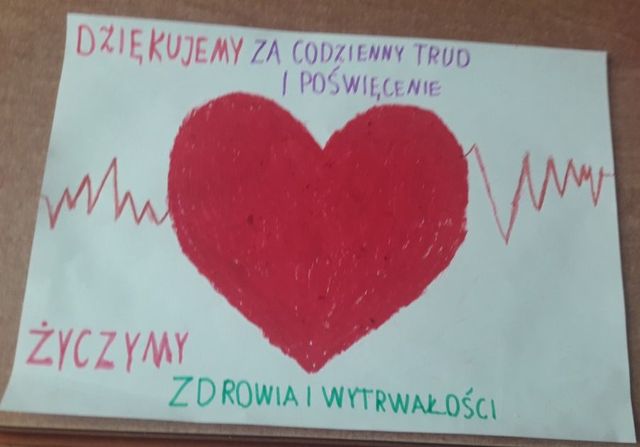 DZIĘKUJEMY ZA CODZIENNY TRUD
I POŚWIĘCENIE
ŻYCZYMY
ZDROWIA I WYTRWAŁOŚCI